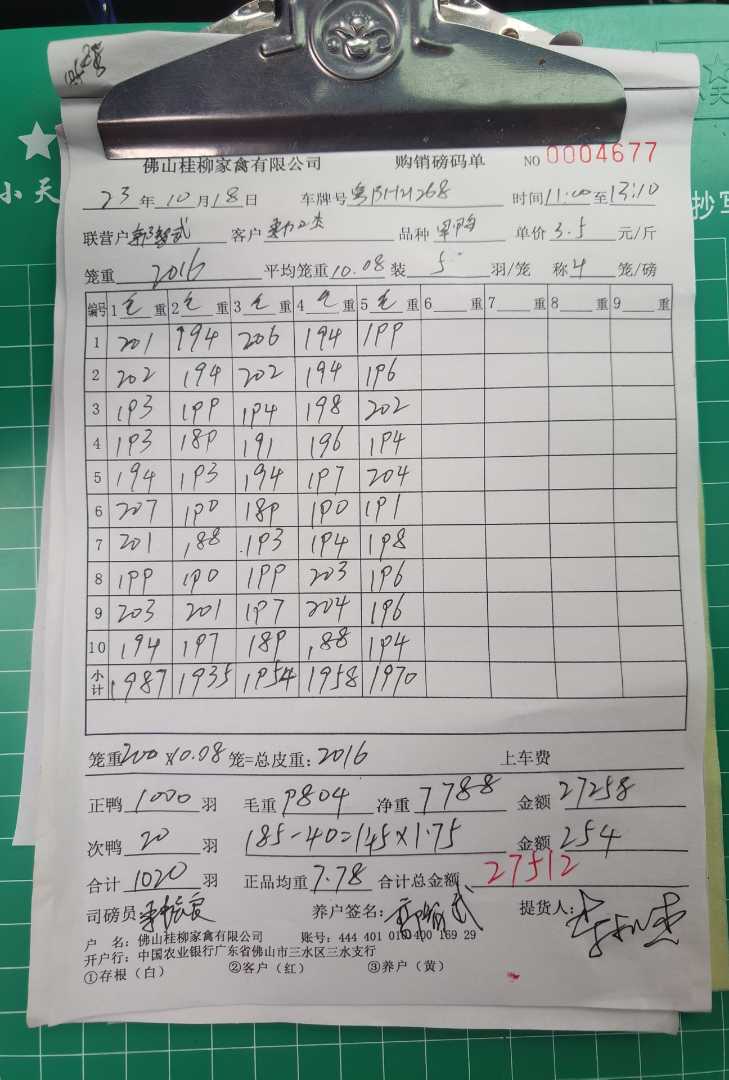 佛山桂柳家禽有限公司 购销磅码单 NO 0004677
23年10月18日 车牌号 粤BH21268 时间11:00至13:10
联营户 客户 品种 单价3.5元/斤
笼重2016平均笼重10.08装5羽/笼 称4笼/磅
编号 1毛重 2毛重 3毛重 4毛重 5毛重 6 重 7 重 8 重 9 重
1 201 194 206 194 199
2 202 194 202 194 196
3 193 199 194 198 202
4 193 189 191 196 194
5 194 193 194 197 204
6 207 190 189 190 191
7 201 188 193 194 198
8 199 190 199 203 196
9 203 201 197 204 196
10 194 197 189 188 194
小计 1987 1935 1954 1958 1970
笼重200×10.08笼=总皮重:2016 上车费
正鸭1000羽 毛重9804净重7788金额27258
次鸭20羽 185-40=145×1.75 金额254
合计1020羽 正品均重7.78合计总金额27512
司磅员 养户签名: 提货人:
户 名:佛山桂柳家禽有限公司 账号:444 401 010 400 169 29
开户行:中国农业银行广东省佛山市三水区三水支行
①存根(白) ②客户(红) ③养户(黄)
小天
抄写